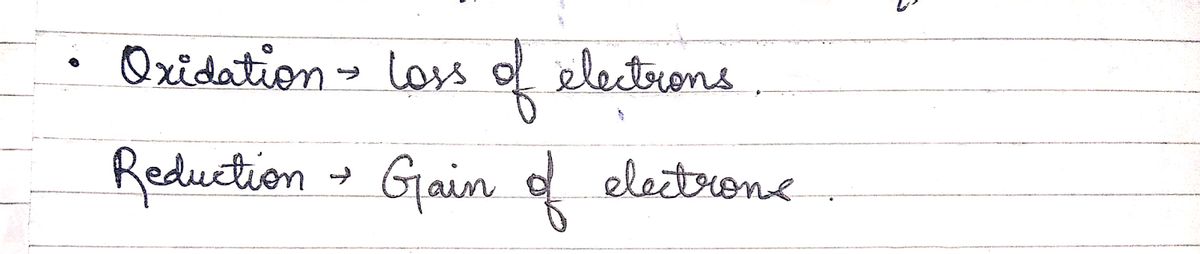 • Oxidation → loss of electrons.
Reduction → Gain of electrons.